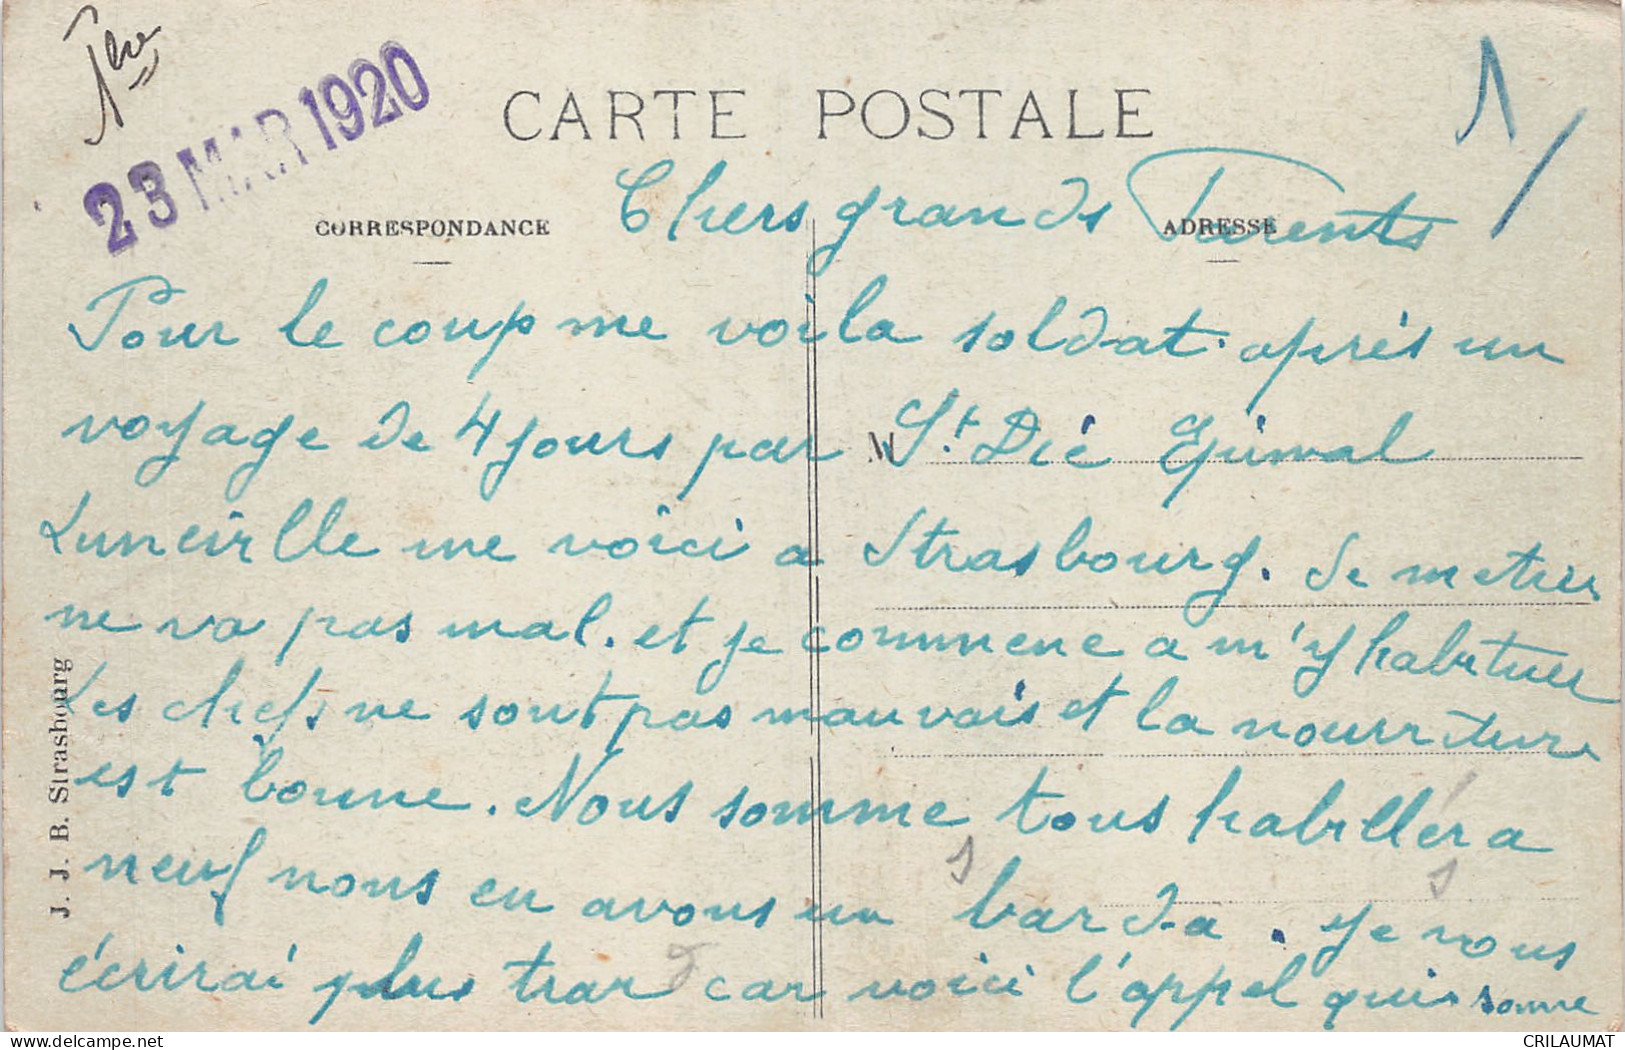 1ère
23 MAR 1920
CARTE POSTALE
1
CORRESPONDANCE
ADRESSE
Chers grands Parents
Pour le coup me voila soldat. après un
voyage de 4 jours par St. Dié Epinal
Luneville me voici a Strasbourg. Le metier
ne va pas mal. et je commence a m'y habituer
Les chefs ne sont pas mauvais et la nourriture
est bonne. Nous somme tous habillér a
neuf nous en avons un barda. je vous
écrirai plus tard car voici l'appel qui sonne
J. J. B. Strasbourg
CRILAUMAT